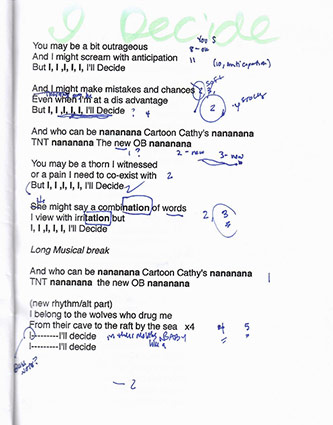 I Decide
You may be a bit outrageous
And I might scream with anticipation
But I, I ,I, I, I, I'll Decide
And I might make mistakes and chances
Even when I'm at a dis advantage
But I, I ,I, I, I, I'll Decide ?
And who can be nananana Cartoon Cathy's nananana
TNT nananana The new OB nananana
1 ? 2 - new 3 - new
You may be a thorn I witnessed
or a pain I need to co-exist with 2
But I, I ,I, I, I, I'll Decide 2
She might say a combination of words
I view with irritation but 2, 3
I, I ,I, I, I, I'll Decide
Long Musical break
And who can be nananana Cartoon Cathy's nananana
TNT nananana the new OB nananana
(new rhythm/alt part)
I belong to the wolves who drug me
From their cave to the raft by the sea x4
I---------I'll decide
I---------I'll decide
— 2